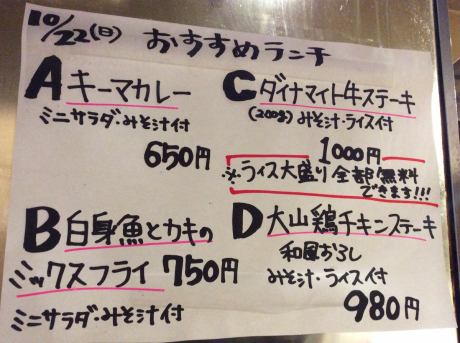 10/22(日) おすすめランチ
A キーマカレー
ミニサラダ・みそ汁付
650円
B 白身魚とカキの
ミックスフライ 750円
ミニサラダ・みそ汁付
C ダイナマイト牛ステーキ
(200g) みそ汁・ライス付
1000円
※ライス大盛り全部無料
できます!!!
D 大山鶏チキンステーキ
和風おろし
みそ汁・ライス付
980円